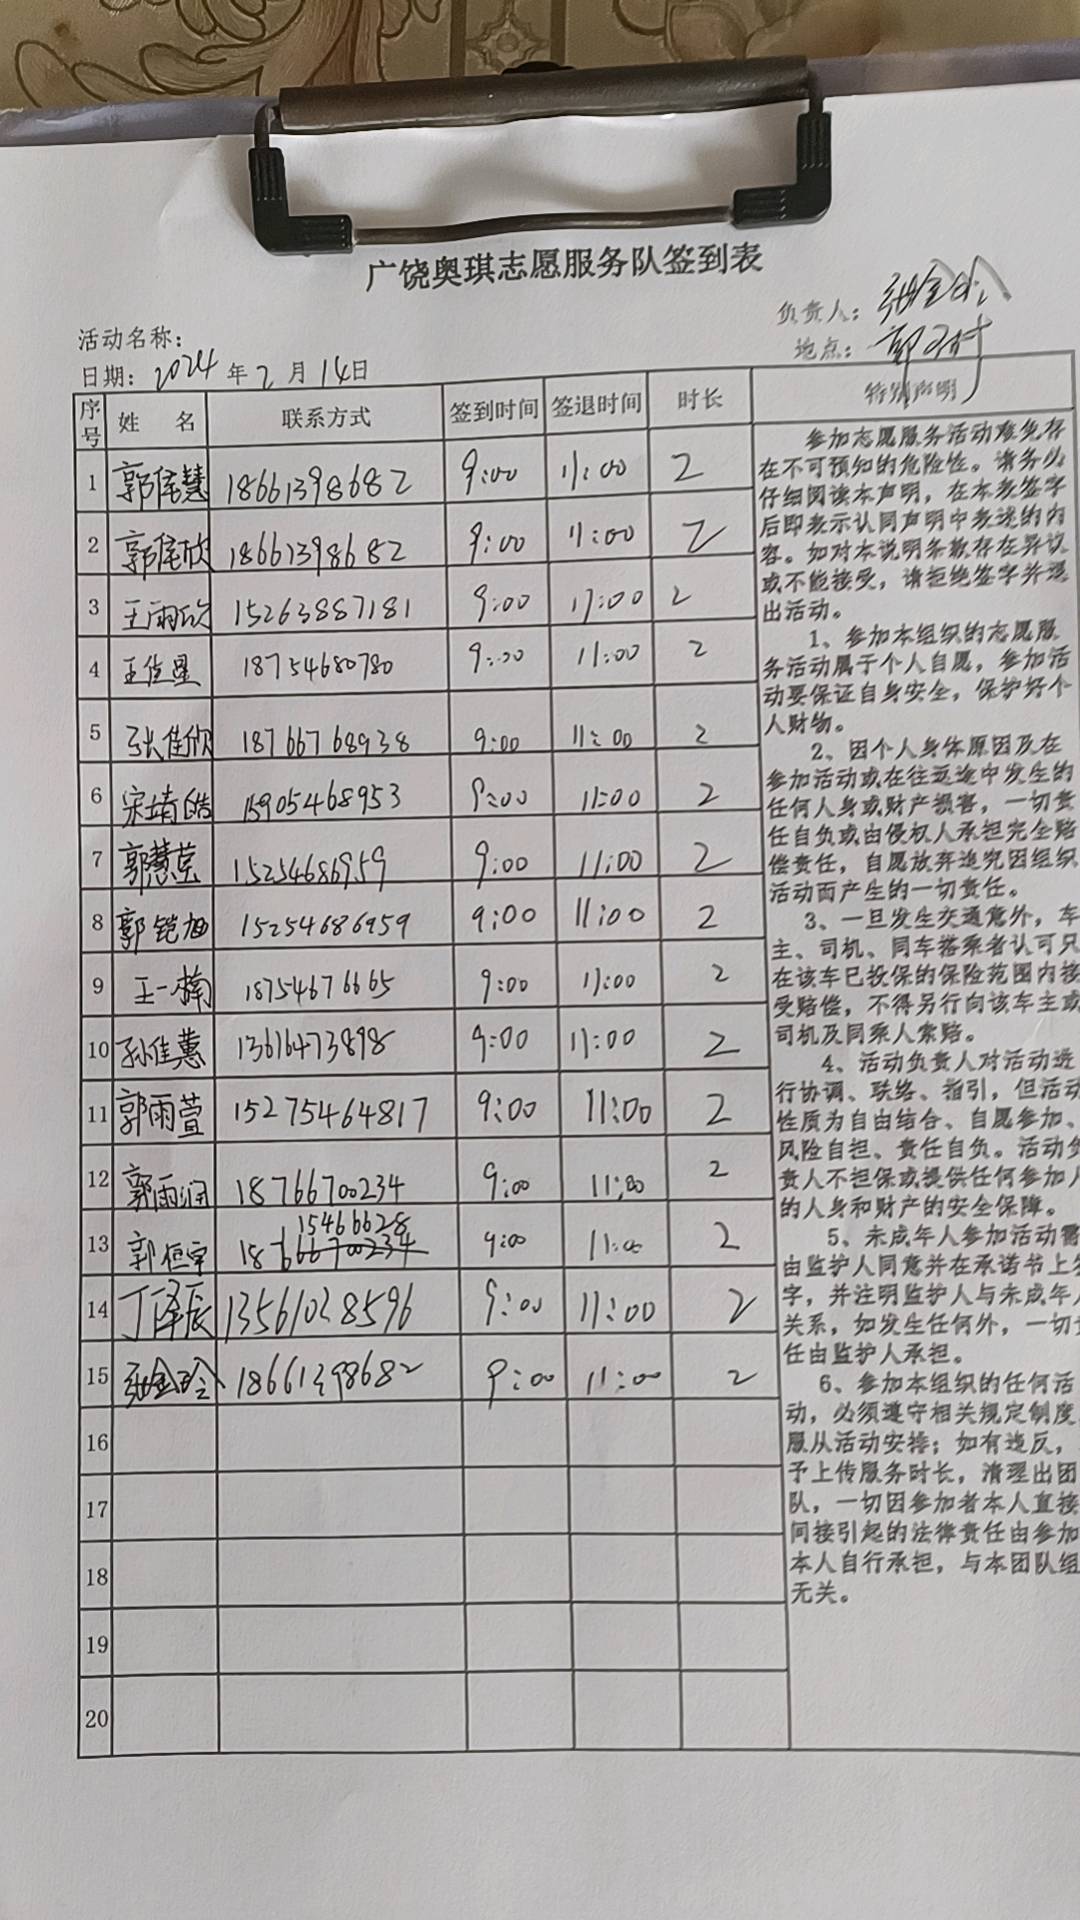 广饶奥琪志愿服务队签到表
活动名称：
负责人：张金玲
日期：2024年2月14日
地点：
序号 姓 名 联系方式 签到时间 签退时间 时长 特别声明
1 郭佳慧 18661398682 9:00 11:00 2
2 郭佳欣 18661398682 9:00 11:00 2
3 王雨欣 15263887181 9:00 11:00 2
4 王佳星 18754680780 9:00 11:00 2
5 张佳欣 18766768938 9:00 11:00 2
6 宋靖皓 15905468953 9:00 11:00 2
7 郭慧莹 15254686959 9:00 11:00 2
8 郭铠旭 15254686959 9:00 11:00 2
9 王一楠 18754676665 9:00 11:00 2
10 孙佳蕙 13616473898 9:00 11:00 2
11 郭雨萱 15275464817 9:00 11:00 2
12 郭雨润 18766700234 9:00 11:00 2
15466628
13 郭恒宇 18766700234 9:00 11:00 2
14 丁泽辰 13561028596 9:00 11:00 2
15 张金玲 18661398682 9:00 11:00 2
16
17
18
19
20
参加志愿服务活动难免存
在不可预知的危险性。请务必
仔细阅读本声明，在本表签字
后即表示认同声明中表述的内
容。如对本说明条款存在异议
或不能接受，请拒绝签字并退
出活动。
1、参加本组织的志愿服
务活动属于个人自愿，参加活
动要保证自身安全，保护好个
人财物。
2、因个人身体原因及在
参加活动或在往返途中发生的
任何人身或财产损害，一切责
任自负或由侵权人承担完全赔
偿责任，自愿放弃追究因组织
活动而产生的一切责任。
3、一旦发生交通意外，车
主、司机、同车搭乘者认可只
在该车已投保的保险范围内接
受赔偿，不得另行向该车主或
司机及同乘人索赔。
4、活动负责人对活动进
行协调、联络、指引，但活动
性质为自由结合、自愿参加、
风险自担、责任自负。活动负
责人不担保或提供任何参加人
的人身和财产的安全保障。
5、未成年人参加活动需
由监护人同意并在承诺书上签
字，并注明监护人与未成年人
关系，如发生任何外，一切责
任由监护人承担。
6、参加本组织的任何活
动，必须遵守相关规定制度，
服从活动安排；如有违反，
予上传服务时长，清理出团
队，一切因参加者本人直接
间接引起的法律责任由参加
本人自行承担，与本团队组
无关。